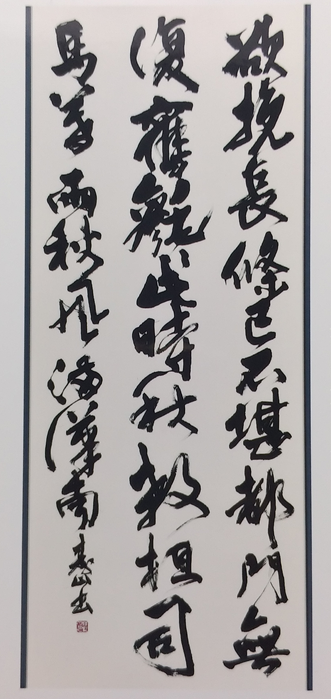 欲挽長條已不堪都門無
復舊毿々此時愁殺桓司
馬暮雨秋風滿漢南